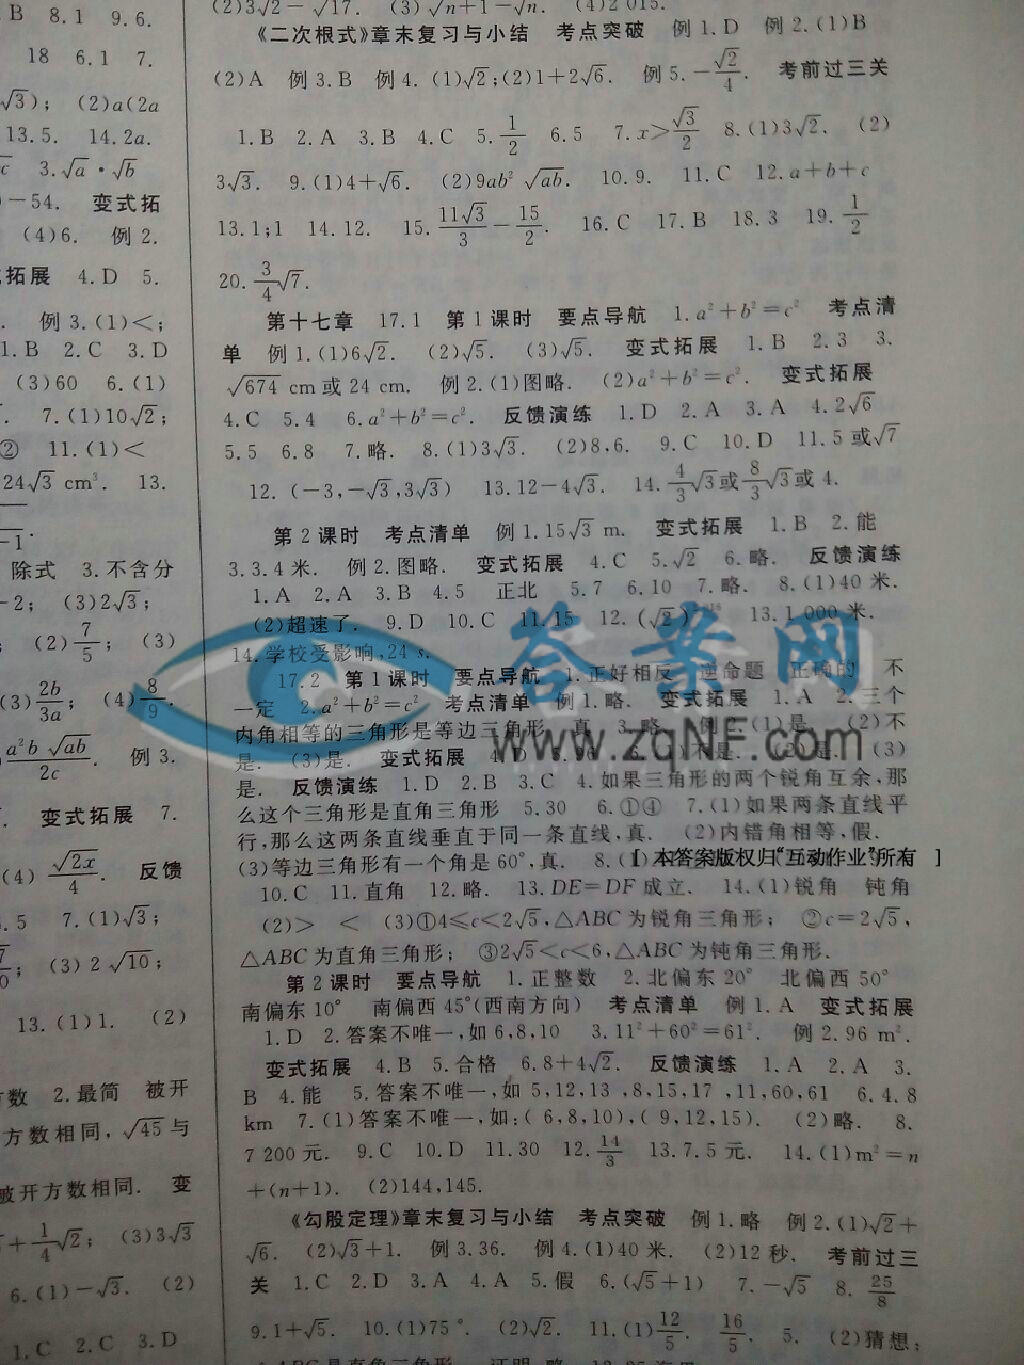 B 8.1 9.6.
18 6.1 7.
√3); (2)a(2a
13.5. 14.2a.
3.√a·√b
-54. 变式拓
(4)6. 例2.
拓展 4.D 5.
例3.(1)<;
1.B 2.C 3.D
(3)60 6.(1)
7.(1)10√2;
② 11.(1)<
24√3 cm³. 13.
除式 3.不含分
-2; (3)2√3;
(2)7/5; (3)
(3)2b/3a; (4)8/9.
a²b√ab/2c. 例3.
变式拓展 7.
(4)√2x/4. 反馈
.5 7.(1)√3;
(3)2√10;
13.(1)1. (2)
方数 2.最简 被开
方数相同,√45与
被开方数相同. 变
+1/4√2; (3)3√3
6.(1)-√3. (2)
1.C 2.C 3.D
(2)3√2-√17. (3)√n+1-√n. (4)2 015.
《二次根式》章末复习与小结 考点突破 例1.D 例2.(1)B
(2)A 例3.B 例4.(1)√2;(2)1+2√6. 例5.-√2/4. 考前过三关
1.B 2.A 3.B 4.C 5.1/2 6.5 7.x>√3/2 8.(1)3√2. (2)
3√3. 9.(1)4+√6. (2)9ab²√ab. 10.9. 11.C 12.a+b+c
13.1;1 14.12. 15.11√3/3-15/2. 16.C 17.B 18.3 19.1/2
20.3/4√7.
第十七章 17.1 第1课时 要点导航 1.a²+b²=c² 考点清
单 例1.(1)6√2. (2)√5. (3)√5. 变式拓展 1.B 2.3 3.
√674 cm或24 cm. 例2.(1)图略. (2)a²+b²=c². 变式拓展
4.C 5.4 6.a²+b²=c². 反馈演练 1.D 2.A 3.A 4.2√6
5.5 6.8 7.略. 8.(1)3√3. (2)8,6. 9.C 10.D 11.5或√7
12.(-3,-√3,3√3) 13.12-4√3. 14.4/3√3或8/3√3或4.
第2课时 考点清单 例1.15√3 m. 变式拓展 1.B 2.能
3.3.4米. 例2.图略. 变式拓展 4.C 5.√2 6.略. 反馈演练
1.A 2.A 3.B 4.5 正北 5.7 6.10 7.略. 8.(1)40米.
(2)超速了. 9.D 10.C 11.15 12.(√2) 13.1 000米.
14.学校受影响,24 s.
17.2 第1课时 要点导航 1.正好相反 逆命题 正确的 不
一定 2.a²+b²=c² 考点清单 例1.略. 变式拓展 1.A 2.三个
内角相等的三角形是等边三角形 真 3.略. 例2.(1)是. (2)不
是. (3)是. 变式拓展 4.D 不是. (2)是. (3)
是. 反馈演练 1.D 2.B 3.C 4.如果三角形的两个锐角互余,那
么这个三角形是直角三角形 5.30 6.①④ 7.(1)如果两条直线平
行,那么这两条直线垂直于同一条直线,真. (2)内错角相等,假.
(3)等边三角形有一个角是60°,真. 8.(1)
[ 本答案版权归“互动作业”所有 ]
10.C 11.直角 12.略. 13.DE=DF成立. 14.(1)锐角 钝角
(2)> < (3)①4≤c<2√5,△ABC为锐角三角形; ②c=2√5,
△ABC为直角三角形; ③2√5<c<6,△ABC为钝角三角形.
第2课时 要点导航 1.正整数 2.北偏东20° 北偏西50°
南偏东10° 南偏西45°(西南方向) 考点清单 例1.A 变式拓展
1.D 2.答案不唯一,如6,8,10 3.11²+60²=61². 例2.96 m².
变式拓展 4.B 5.合格 6.8+4√2. 反馈演练 1.A 2.A 3.
B 4.能 5.答案不唯一,如 5,12,13 ,8,15,17 ,11,60,61 6.4.8
km 7.(1)答案不唯一,如:(6,8,10),(9,12,15). (2)略. 8.
7 200元. 9.C 10.D 11.30 12.14/3 13.7.5元. 14.(1)m²=n
+(n+1). (2)144,145.
《勾股定理》章末复习与小结 考点突破 例1.略 例2.(1)√2+
√6. (2)√3+1. 例3.36. 例4.(1)40米. (2)12秒. 考前过三
关 1.C 2.D 3.A 4.A 5.假 6.(√5+1) 7.-√5 8.25/8
9.1+√5. 10.(1)75°. (2)√2. 11.(1)12/5 16/5. 5. (2)猜想:
答案网
www.zqNF.com